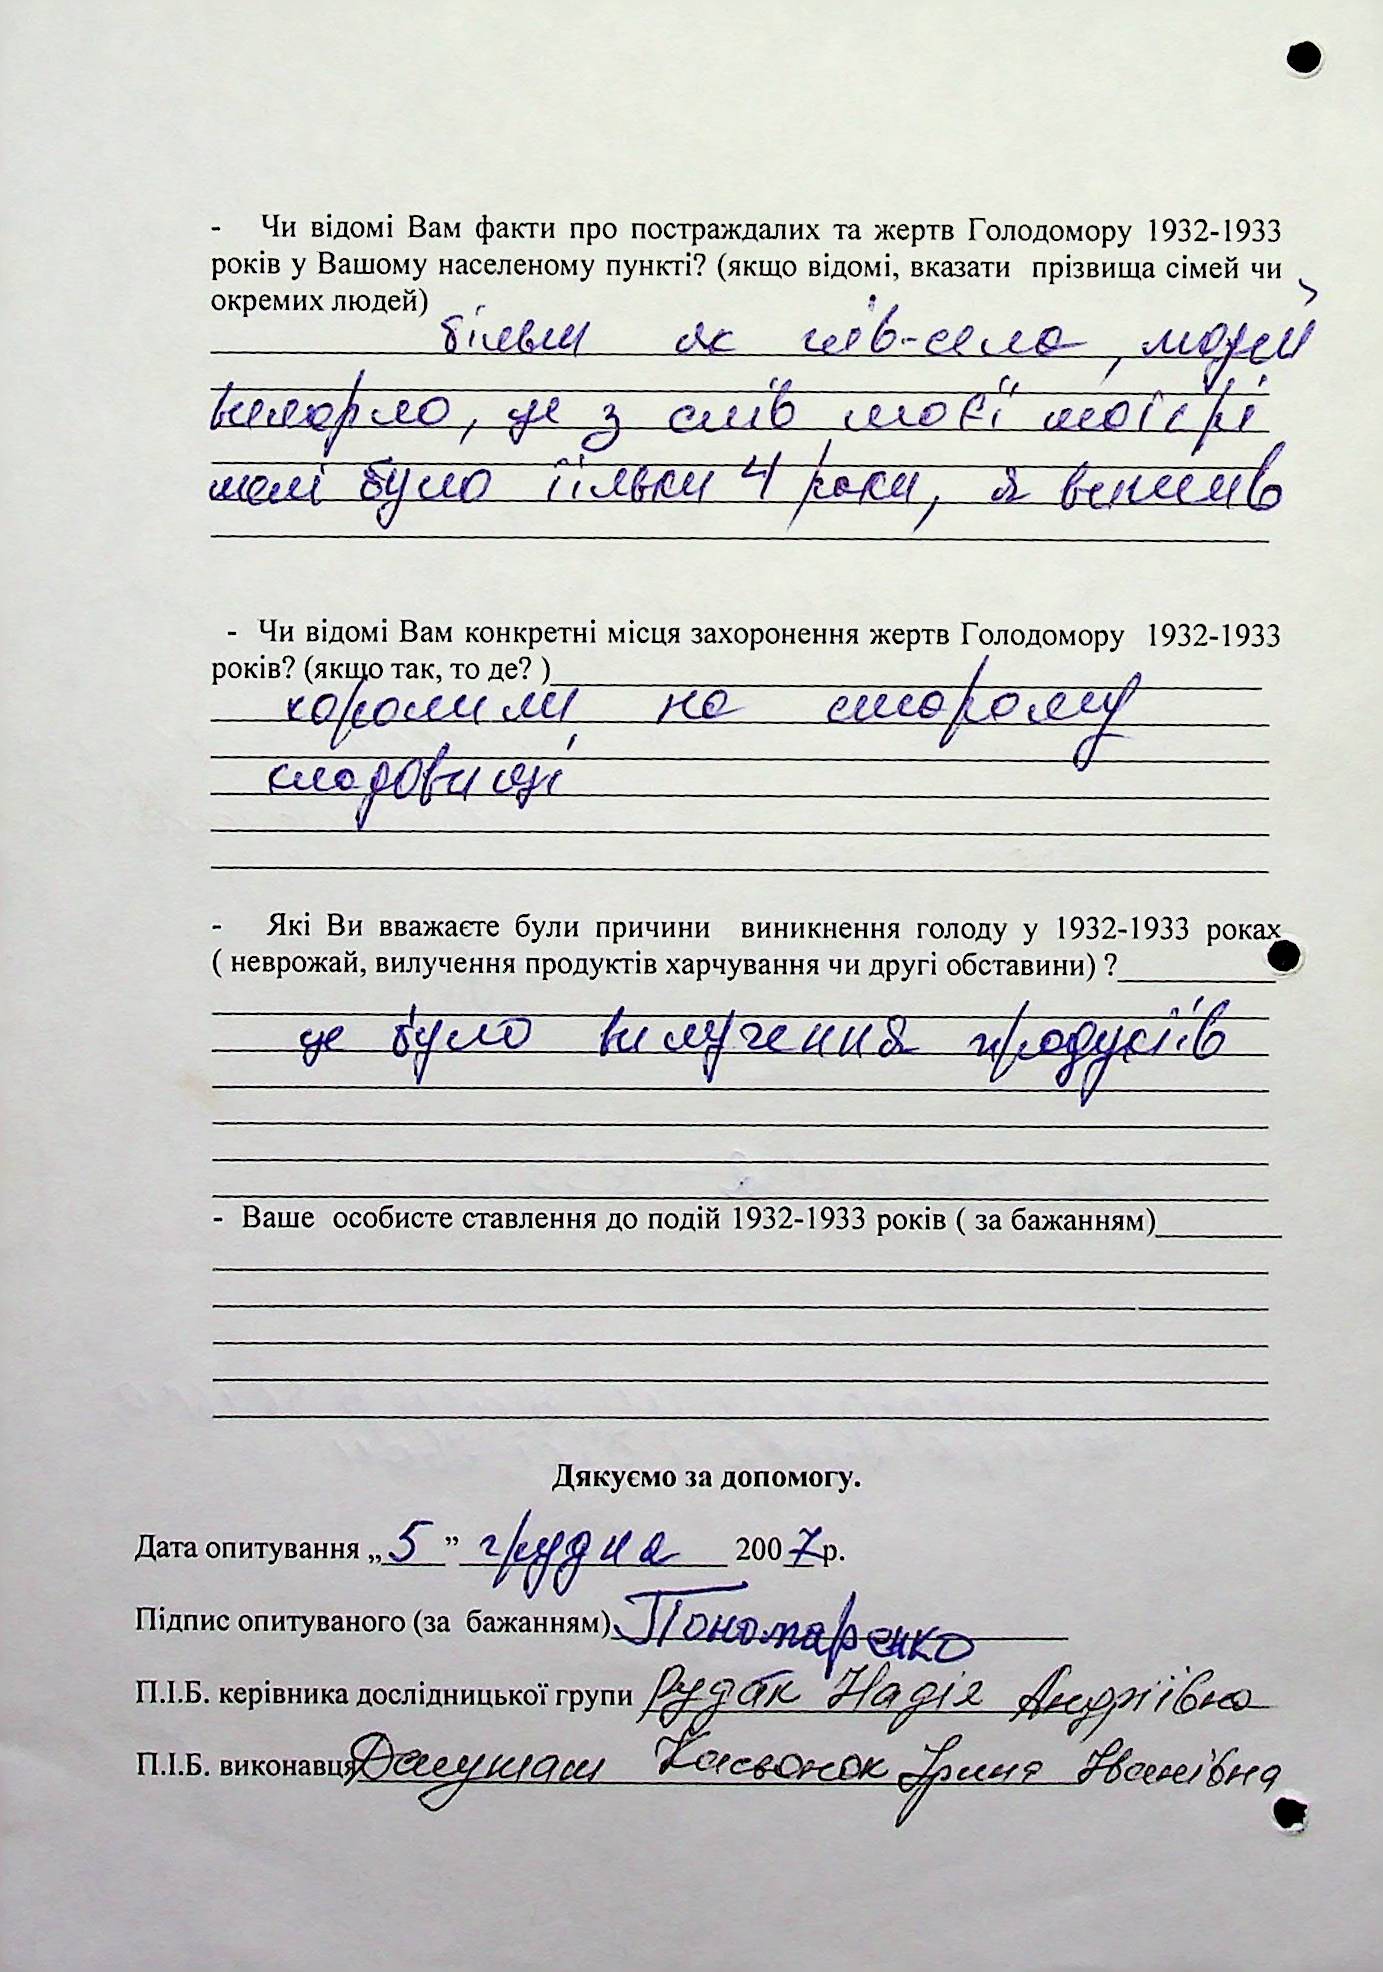 - Чи відомі Вам факти про постраждалих та жертв Голодомору 1932-1933
років у Вашому населеному пункті? (якщо відомі, вказати прізвища сімей чи
окремих людей)
більш як пів-села, людей
виморло, це з слів моєї матері
мені було тільки 4 роки, я вижив
- Чи відомі Вам конкретні місця захоронення жертв Голодомору 1932-1933
років? (якщо так, то де? )
хоронили на старому
кладовищі
- Які Ви вважаєте були причини виникнення голоду у 1932-1933 роках
( неврожай, вилучення продуктів харчування чи другі обставини) ?
це було вилучення продуктів
- Ваше особисте ставлення до подій 1932-1933 років ( за бажанням)
Дякуємо за допомогу.
Дата опитування „5” грудня 2007р.
Підпис опитуваного (за бажанням) Пономаренко
П.І.Б. керівника дослідницької групи Рудак Надія Андріївна
П.І.Б. виконавця Ірина Іванівна